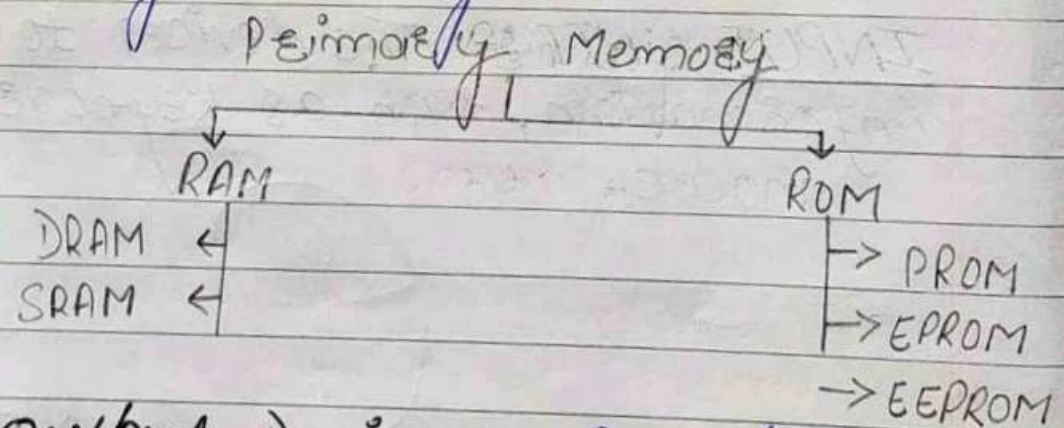 Primary Memory
RAM ROM
DRAM ← → PROM
SRAM ← → EPROM
→ EEPROM